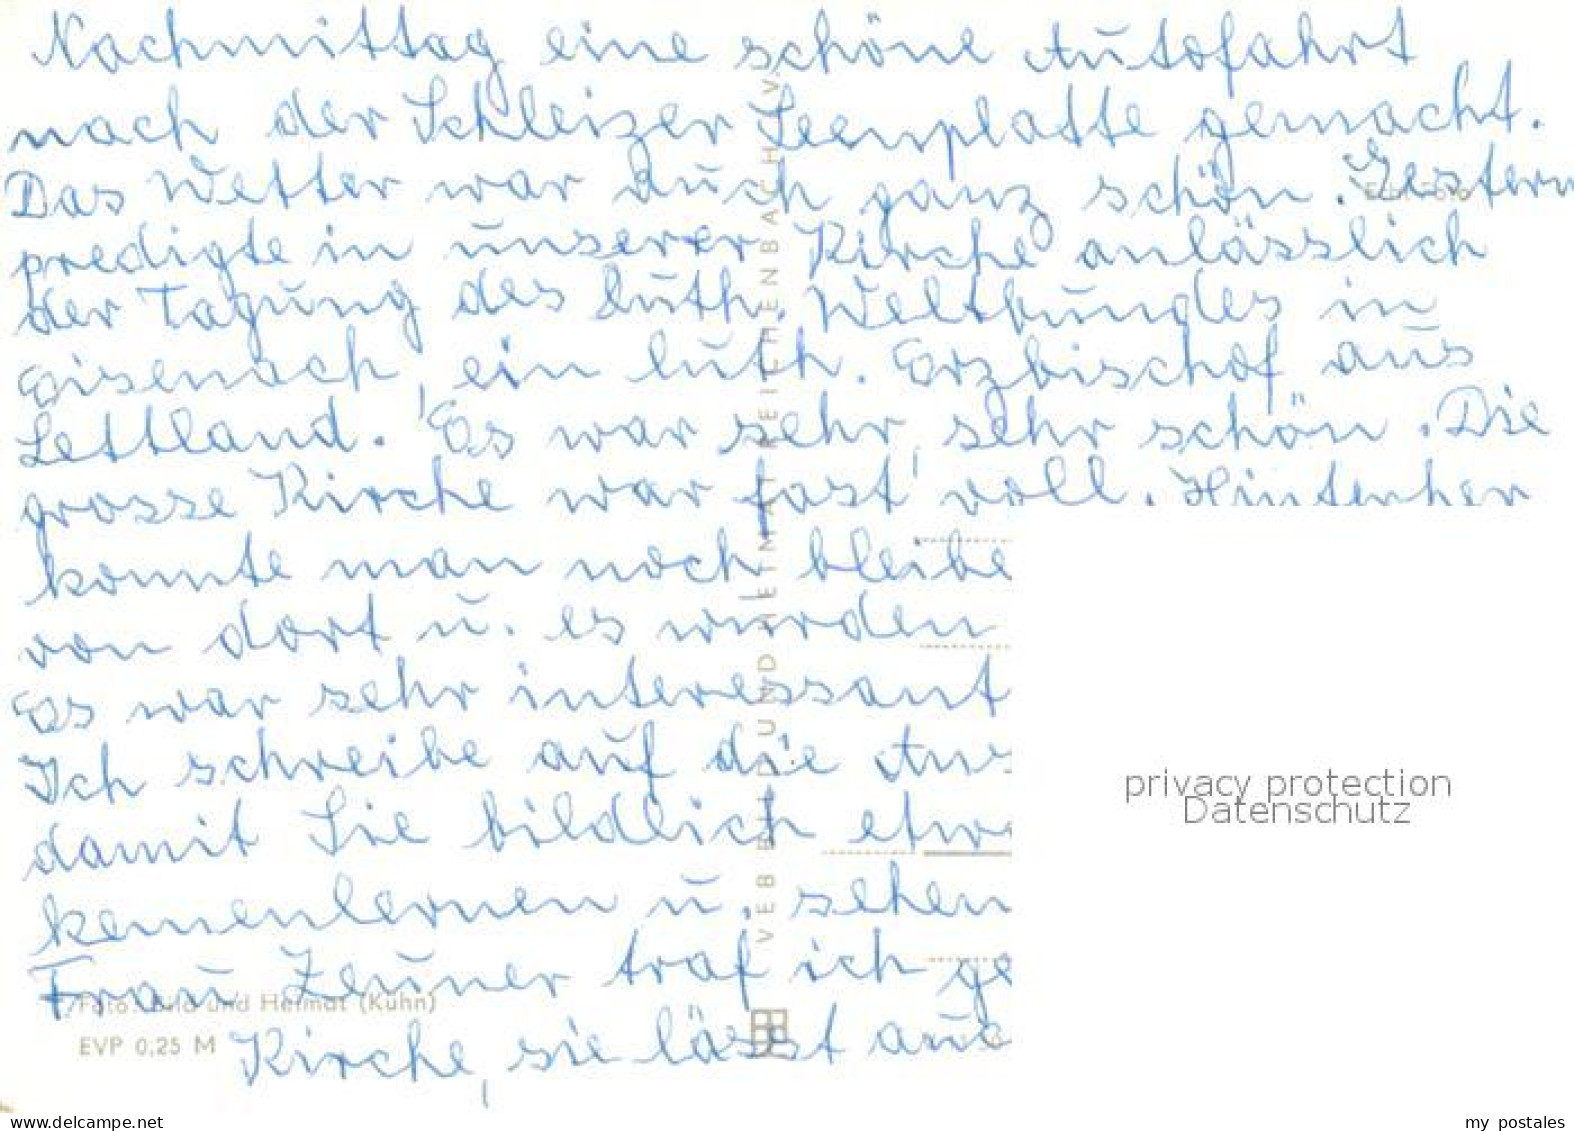 Nachmittag eine schöne Autofahrt
nach der Schleizer Seenplatte gemacht.
Das Wetter war auch ganz schön. Gestern
predigte in unserer Kirche anlässlich
der Tagung des Luth. Weltbundes in
Eisenach, ein luth. Erzbischof aus
Lettland. Es war sehr, sehr schön. Die
grosse Kirche war fast voll. Hinterher
konnte man noch bleibe
von dort u. es wurden
Es war sehr interessant
Ich schreibe auf die Ans
damit Sie bildlich etw
kennenlernen u. sehen
Frau Zeuner traf ich ge
Kirche, sie lässt auc
Echt Foto
VEB BILD UND HEIMAT REICHENBACH I. V.
Foto: Bild und Heimat (Kühn)
EVP 0,25 M
privacy protection
Datenschutz
www.delcampe.net
my_postales